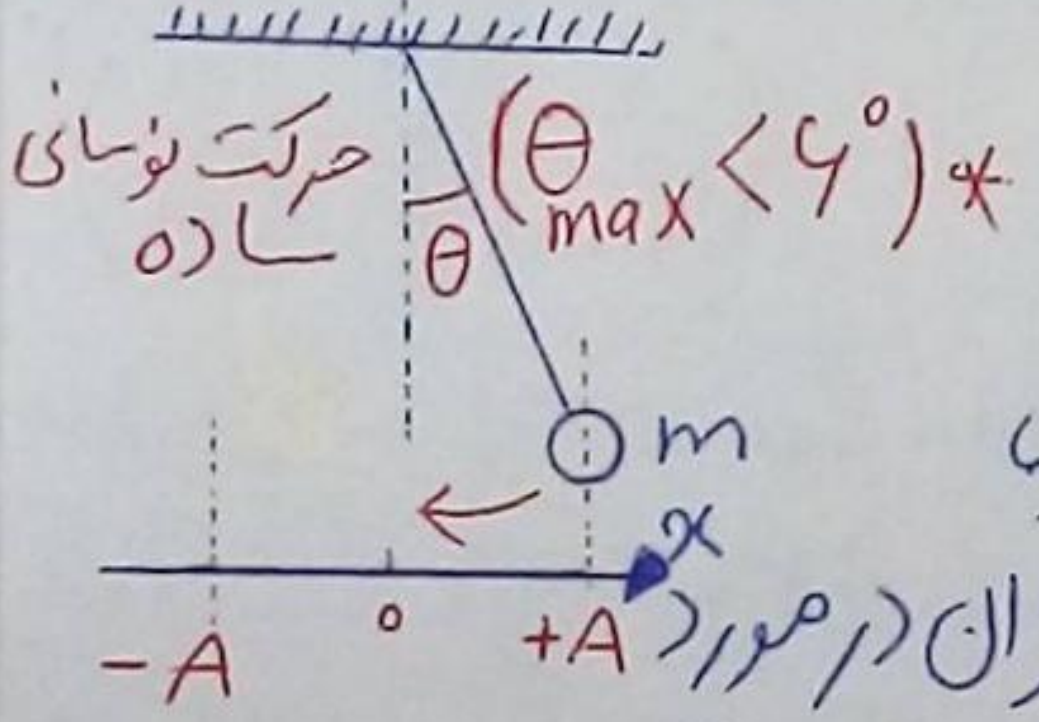 حرکت نوسانی
ساده
(θmax < ۶°) *
θ
m
x
-A
۰
+A
در مورد